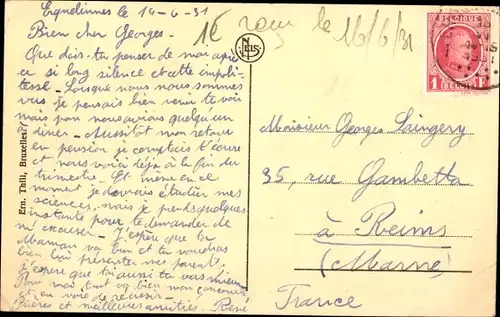 Erquelinnes le 14-6-31
Bien cher Georges -
Que dois-tu penser de moi après
ce si long silence et cette impoli-
tesse - Lorsque nous nous sommes
vus je pensais bien venir te voir
mais pas nous avions quelqu'un
à dîner - Aussitôt mon retour
en pension je comptais t'écrire
et nous voici déjà à la fin du
trimestre. Et même en ce
moment je devrais étudier mes
sciences, mais je prends quelques
instants pour te demander de
m'excuser - J'espère que ta
Maman va bien et tu voudras
bien lui présenter mes
J'espère que toi aussi tu vas mieux
Pour moi tout va bien mon concours
est en voie de réussir -
et meilleures amitiés. René
1€
reçu le 16/6/31
NELS
BELGIQUE
1F 1F
BELGIË
Ern. Thill, Bruxelles
Monsieur Georges Laingery
35, rue Gambetta
à Reims
(Marne)
France